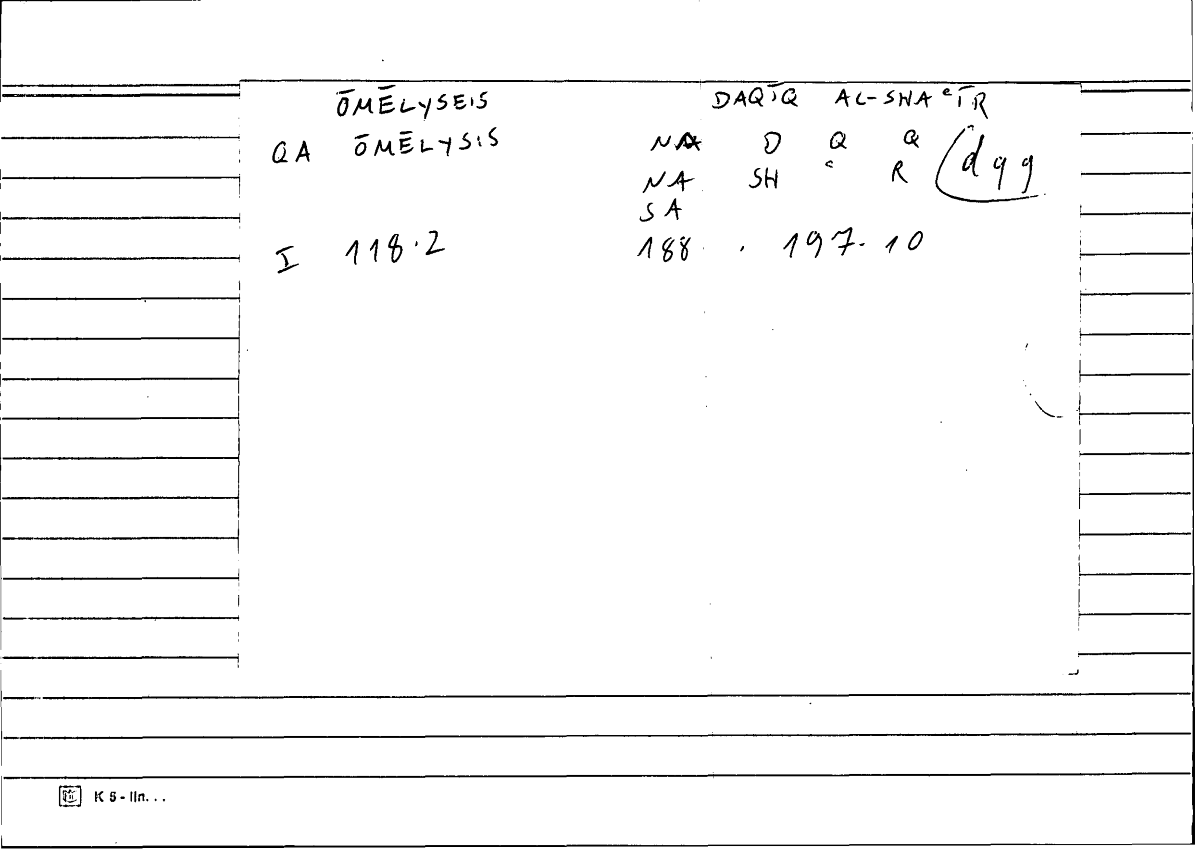 ŌMĒLYSEIS DAQĪQ AL-SHAʿĪR
QA ŌMĒLYSIS NA D Q Q
NA SH ʿ R dqq
SA
I 118.2 188 . 197.10
K 5 - lin...